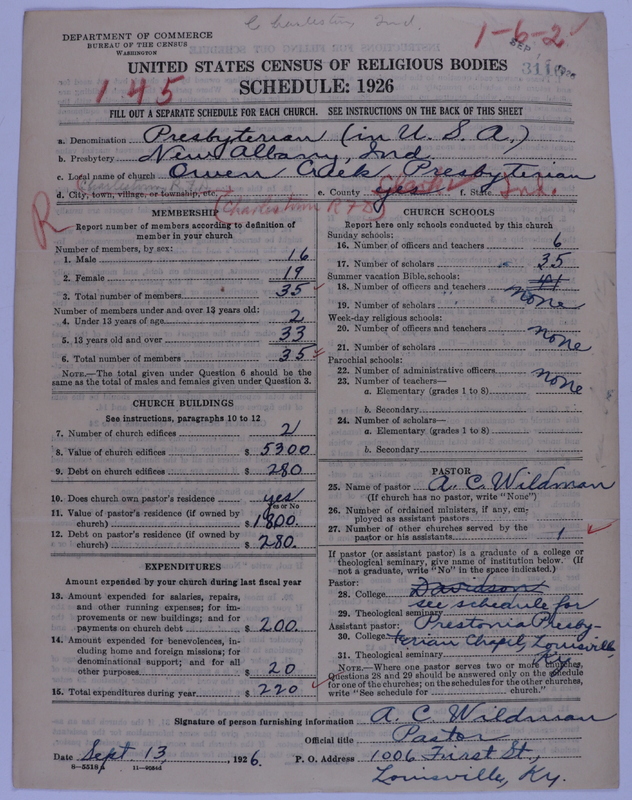 C Charlestown Ind.
DEPARTMENT OF COMMERCE
BUREAU OF THE CENSUS
WASHINGTON
1-6-2
SEP
UNITED STATES CENSUS OF RELIGIOUS BODIES
145
SCHEDULE: 1926
FILL OUT A SEPARATE SCHEDULE FOR EACH CHURCH. SEE INSTRUCTIONS ON THE BACK OF THIS SHEET
a. Denomination Presbyterian (in U. S. A.)
b. Presbytery New Albany, Ind
c. Local name of church Owen Creek Presbyterian
d. City, town, village, or township, etc. Charlestown R
e. County yes f. State Ind.
R
Charlestown R F D
MEMBERSHIP
Report number of members according to definition of member in your church
Number of members, by sex:
1. Male 16
2. Female 19
3. Total number of members 35
Number of members under and over 13 years old:
4. Under 13 years of age 2
5. 13 years old and over 33
6. Total number of members 35
NOTE.—The total given under Question 6 should be
same as the total of males and females given under Question 3.
CHURCH BUILDINGS
See instructions, paragraphs 10 to 12
7. Number of church edifices 2
8. Value of church edifices $ 5300
9. Debt on church edifices $ 280
10. Does church own pastor's residence yes
Yes or No
11. Value of pastor's residence (if owned by
church) $ 1800.
12. Debt on pastor's residence (if owned by
church) $ 280.
EXPENDITURES
Amount expended by your church during last fiscal year
13. Amount expended for salaries, repairs,
and other running expenses; for im-
provements or new buildings; and for
payments on church debt $ 200.
14. Amount expended for benevolences, in-
cluding home and foreign missions; for
denominational support; and for all
other purposes $ 20
15. Total expenditures during year $ 220
CHURCH SCHOOLS
Report here only schools conducted by this church
Sunday schools:
16. Number of officers and teachers 6
17. Number of scholars 35
41
Summer vacation Bible schools:
18. Number of officers and teachers none
19. Number of scholars
Week-day religious schools:
20. Number of officers and teachers none
21. Number of scholars
Parochial schools:
22. Number of administrative officers none
23. Number of teachers—
a. Elementary (grades 1 to 8)
b. Secondary
24. Number of scholars—
a. Elementary (grades 1 to 8)
b. Secondary
PASTOR
25. Name of pastor A. C. Wildman
(If church has no pastor, write "None")
26. Number of ordained ministers, if any, em-
ployed as assistant pastors
27. Number of other churches served by the
pastor or his assistants 1
If pastor (or assistant pastor) is a graduate of a college or
theological seminary, give name of institution below. (If
not a graduate, write "No" in the space indicated.)
Pastor:
28. College Davidson
see schedule for
29. Theological seminary
Assistant pastor: Prestonia Presby-
30. College terian Chapel, Louisville
31. Theological seminary Ky.
NOTE.—Where one pastor serves two or more churches,
Questions 28 and 29 should be answered only on the schedule
for one of the churches; on the schedules for the other churches,
write "See schedule for church."
Signature of person furnishing information A. C. Wildman
Official title Pastor
Date Sept. 13, 1926. P. O. Address 1006 First St.,
8—5518 11—9054d
Louisville, Ky.